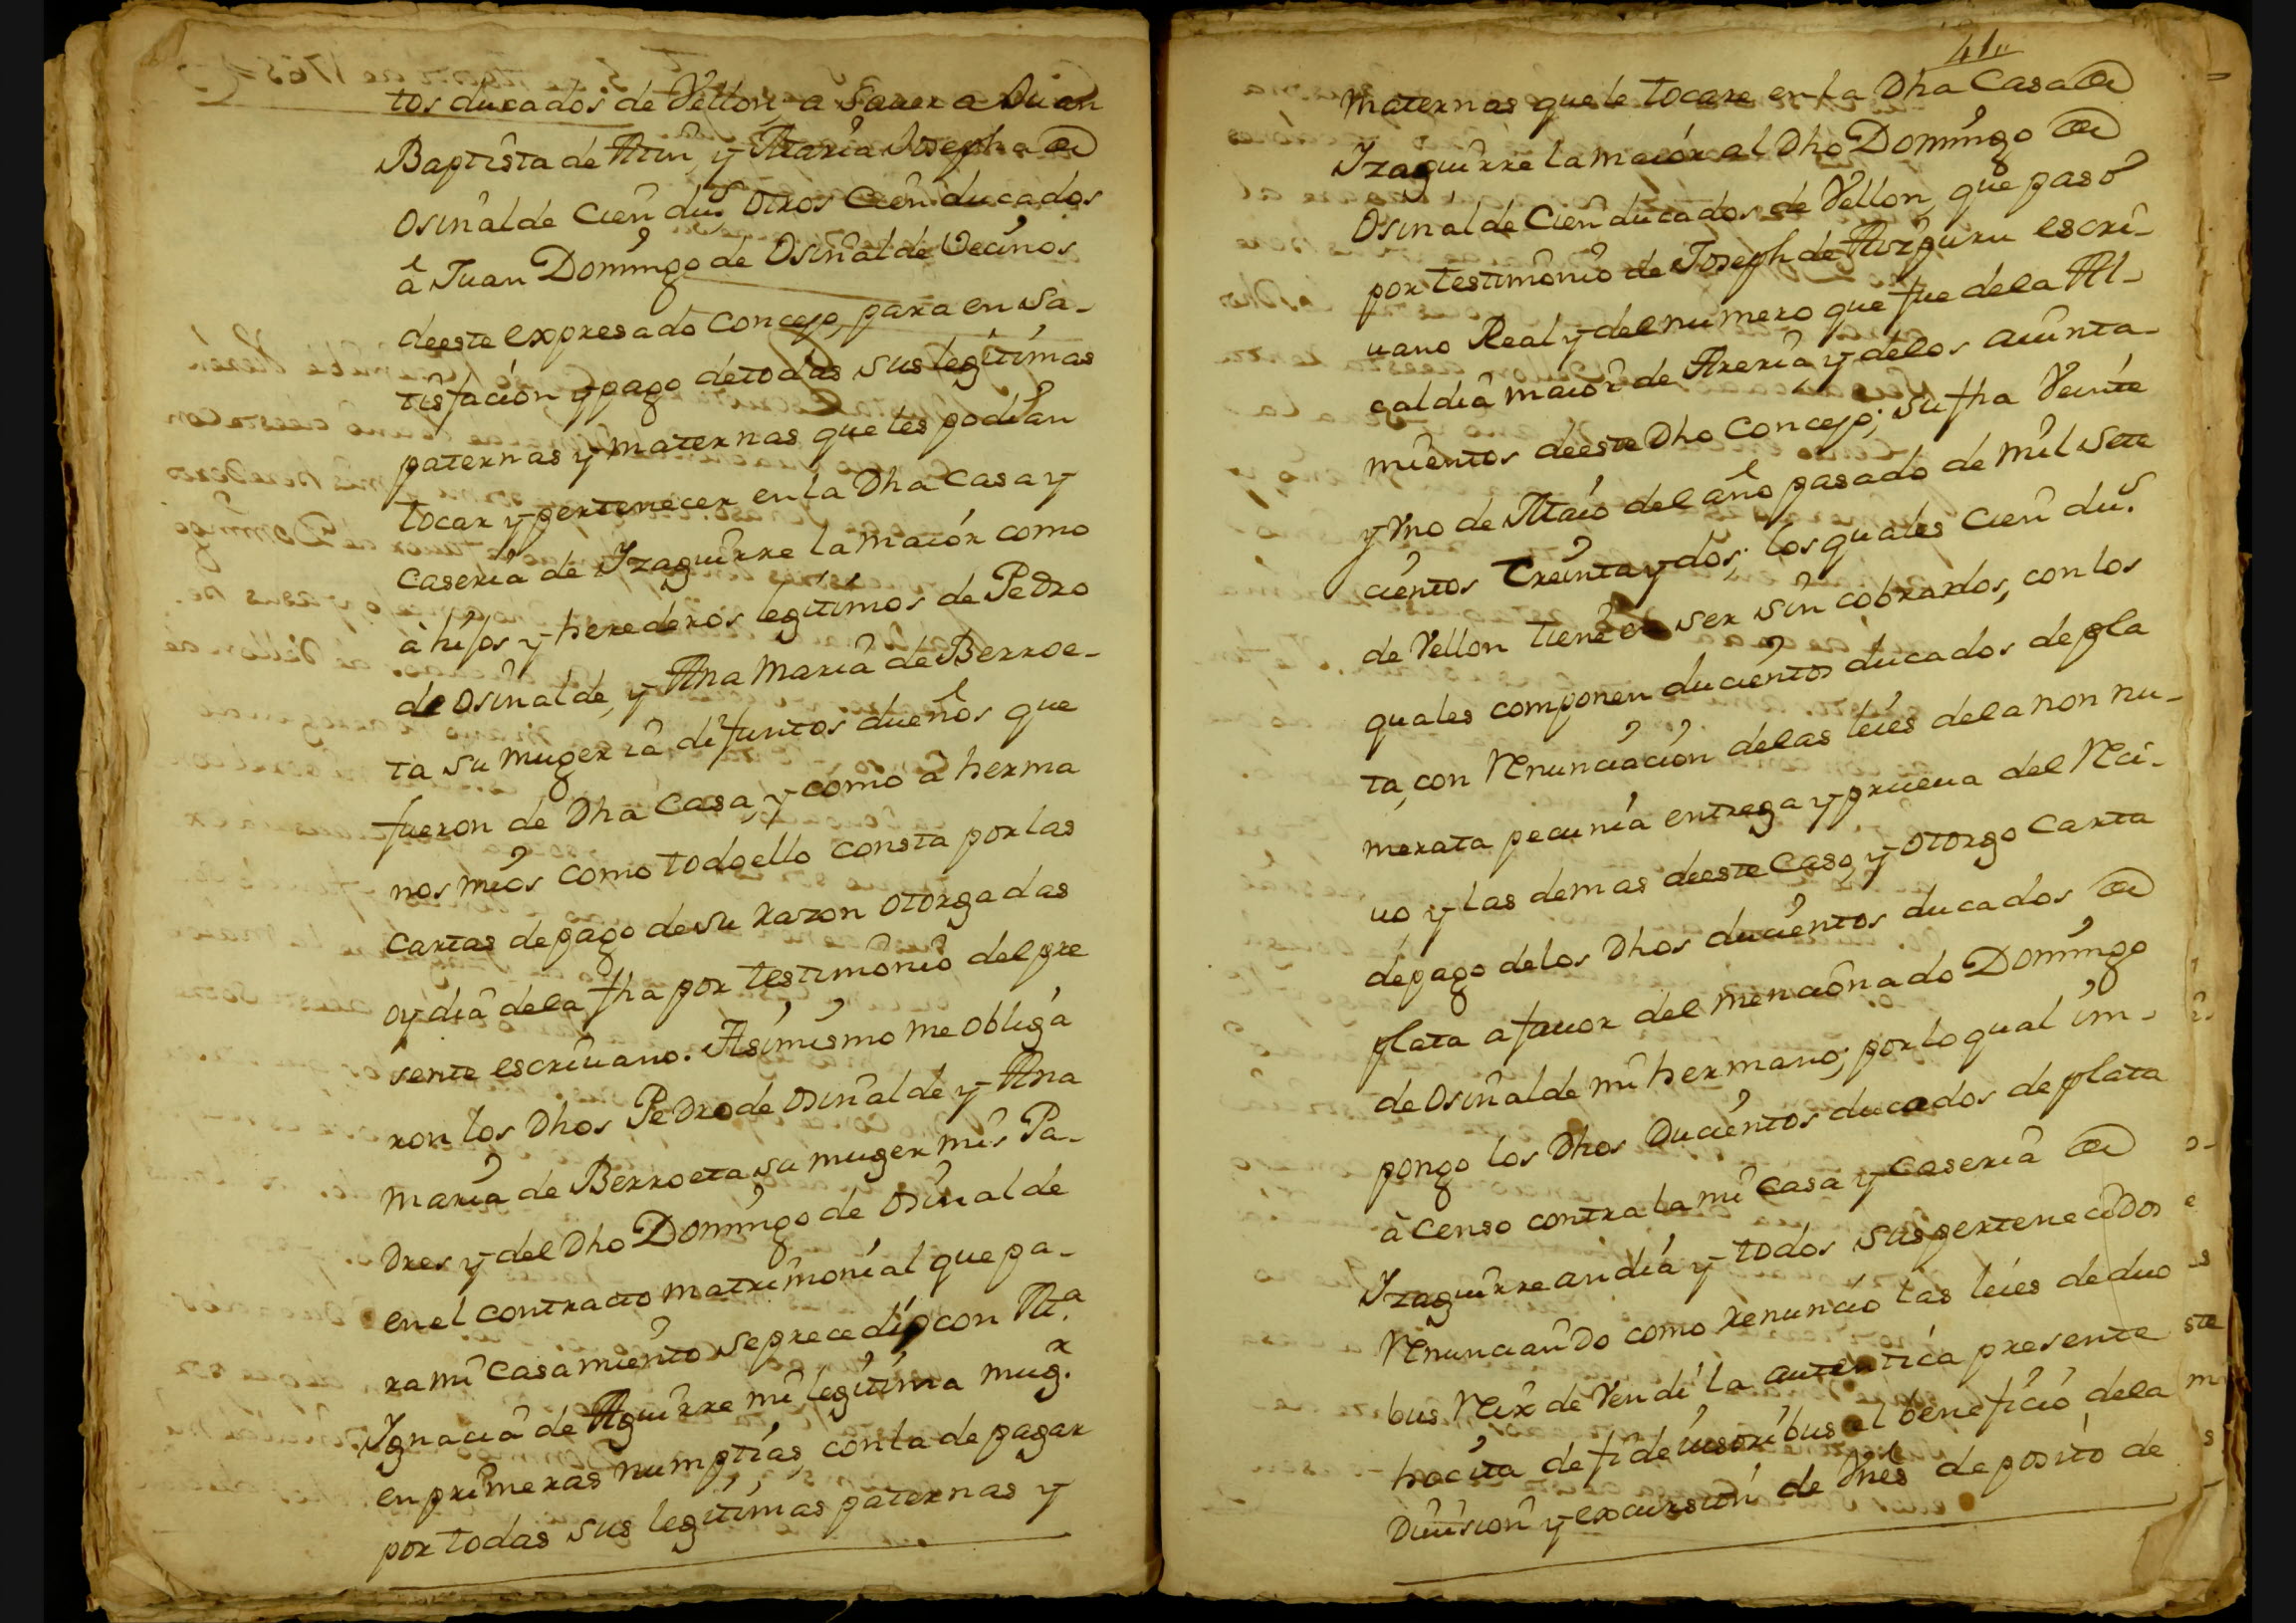 tos ducados de Vellon, a Sauer a Juan
Baptista de Atin, y Maria Josepha de
Osinalde Cien dus. otros Cien ducados
â Juan Domingo de Osinalde Vecinos
deeste expresado Concejo, para en sa-
tisfacion y pago detodas sus legitimas
paternas y maternas que les podian
tocar y pertenecer en la Dha Casa y
Caseria de Yzaguirre la maior como
à hijos y herederos legitimos de Pedro
de Osinalde, y Ana Maria de Berroe-
ta su muger iâ difuntos dueños que
fueron de Dha Casa, y como a herma
nos mios como todo ello consta por las
cartas de pago de su razon otorgadas
oy dia dela fha por testimonio del pre
sente escriuano. Asimismo me obliga
ron los Dhos Pedro de Osinalde y Ana
Maria de Berroeta su muger mis Pa-
dres y del Dho Domingo de Osinalde
en el contracto matrimonial que pa-
ra mi Casamiento se precedio con Ma.
Ygnacia de Aguirre mi legitima mugr.
en primeras numptias, con la de pagar
por todas sus legitimas paternas y
41
maternas que le tocare en la Dha Casa de
Yzaguirre la maior al Dho Domingo de
Osinalde Cien ducados de Vellon, que pasó
por testimonio de Joseph de Aizpuru escri-
uano Real y del numero que fue dela Al-
caldia maior de Areria y delos aiunta-
mientos deeste Dho Concejo; su fha Veinte
y Vno de Maio del año pasado de mil Sete
cientos Treinta y dos; los quales Cien dus.
de Vellon tiene en ser sin cobrarlos, con los
quales componen ducientos ducados de pla
ta, con Renunciacion delas leies dela non nu-
merata pecunia entrega y prueua del Reci-
uo, y las demas deeste Caso, y otorgo Carta
de pago delos Dhos ducientos ducados de
plata a fauor del mencionado Domingo
de Osinalde mi hermano; por lo qual im-
pongo los Dhos Ducientos ducados de plata
à Censo contra la mi Casa y Caseria de
Yzaguirre andia y todos sus pertenecidos
Renunciando como renuncio las leies de duo
bus Reix de Vendi la autentica presente
hoc ita de fide iusoribus el beneficio dela
Diuision y excursion de Vnes deposito de